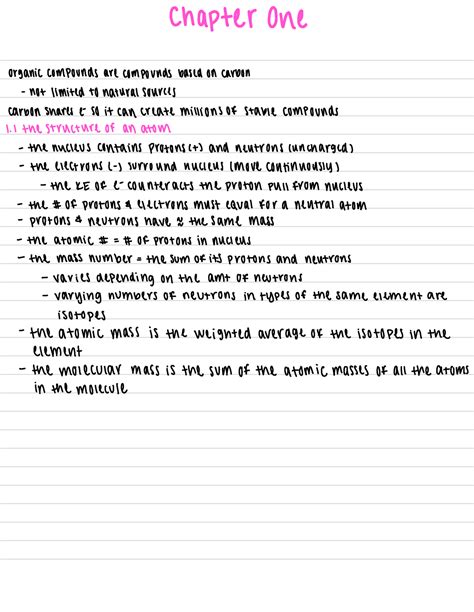 Chapter One
organic compounds are compounds based on carbon
- not limited to natural sources
carbon shares e⁻ so it can create millions of stable compounds
1.1 the structure of an atom
- the nucleus contains protons (+) and neutrons (uncharged)
- the electrons (-) surround nucleus (move continuously)
- the KE of e⁻ counteracts the proton pull from nucleus
- the # of protons & electrons must equal for a neutral atom
- protons & neutrons have ≈ the same mass
- the atomic # = # of protons in nucleus
- the mass number = the sum of its protons and neutrons
- varies depending on the amt of neutrons
- varying numbers of neutrons in types of the same element are
isotopes
- the atomic mass is the weighted average of the isotopes in the
element
- the molecular mass is the sum of the atomic masses of all the atoms
in the molecule